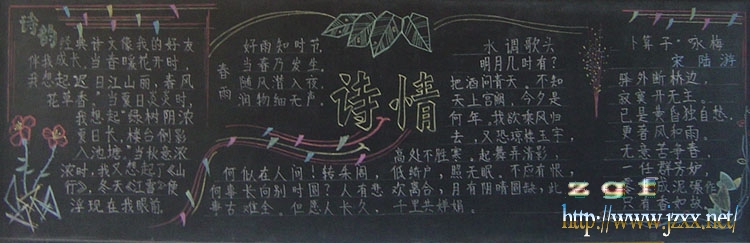 诗韵
经典诗文像我的好友
伴我成长。当春暖花开时，
我想起"迟日江山丽，春风
花草香。当夏日炎炎时，
我想起"绿树阴浓
夏日长，楼台倒影
入池塘。"当秋意浓
浓时，我又想起了《山
行》，冬天《江雪》便
浮现在我眼前。
春雨
好雨知时节，
当春乃发生。
随风潜入夜，
润物细无声。
诗情
水调歌头
明月几时有？
把酒问青天。不知
天上宫阙，今夕是
何年。我欲乘风归
去，又恐琼楼玉宇，
高处不胜寒。起舞弄清影，
何似在人间！转朱阁，低绮户，照无眠。不应有恨，
何事长向别时圆？人有悲欢离合，月有阴晴圆缺，此
事古难全。但愿人长久，千里共婵娟。
卜算子·咏梅
宋 陆游
驿外断桥边，
寂寞开无主。
已是黄昏独自愁，
更着风和雨。
无意苦争春，
一任群芳妒。
零落成泥碾作
只有香如故
zgf
http://www.jzxx.net/